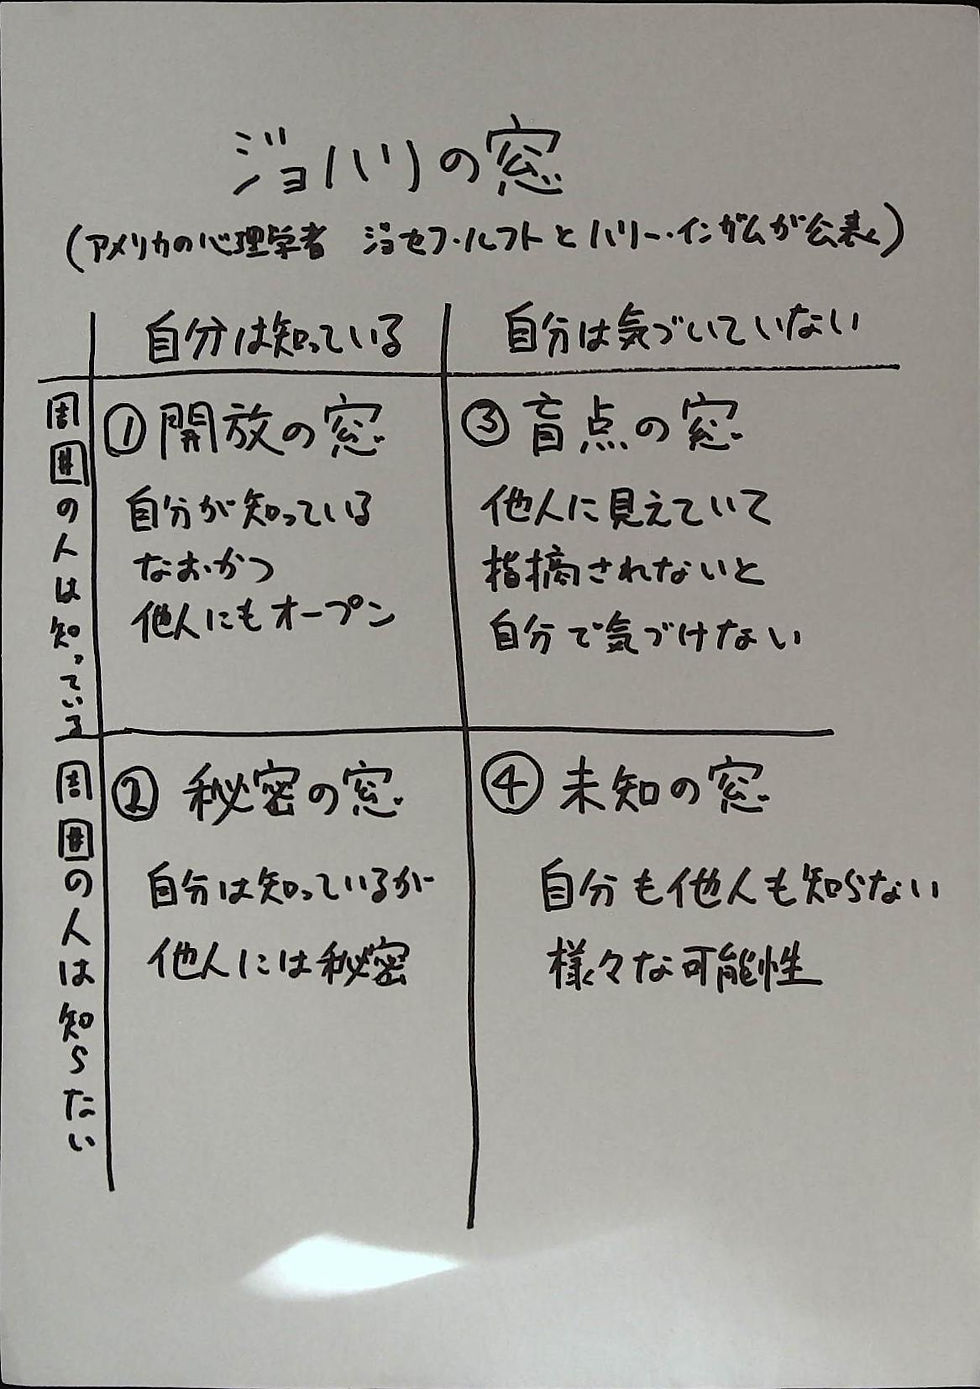 ジョハリの窓
(アメリカの心理学者 ジョセフ・ルフトとハリー・インガムが公表)
自分は知っている
自分は気づいていない
周囲の人は知っている
①開放の窓
自分が知っている
なおかつ
他人にもオープン
③盲点の窓
他人に見えていて
指摘されないと
自分で気づけない
周囲の人は知らない
②秘密の窓
自分は知っているが
他人には秘密
④未知の窓
自分も他人も知らない
様々な可能性